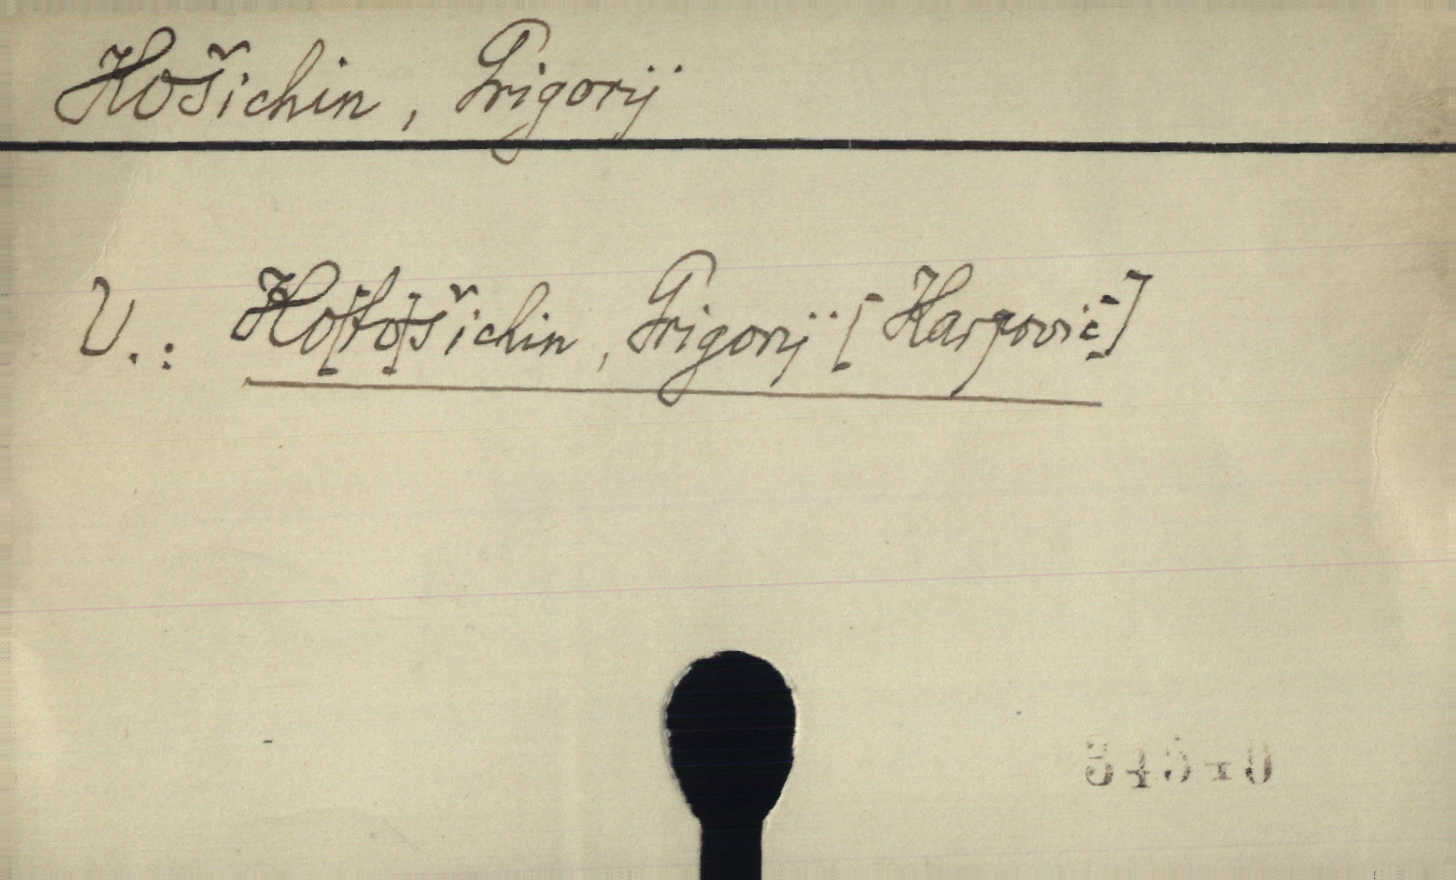 Košichin, Grigorij
V.: Ko[to]šichin, Grigorij [Karpovič]